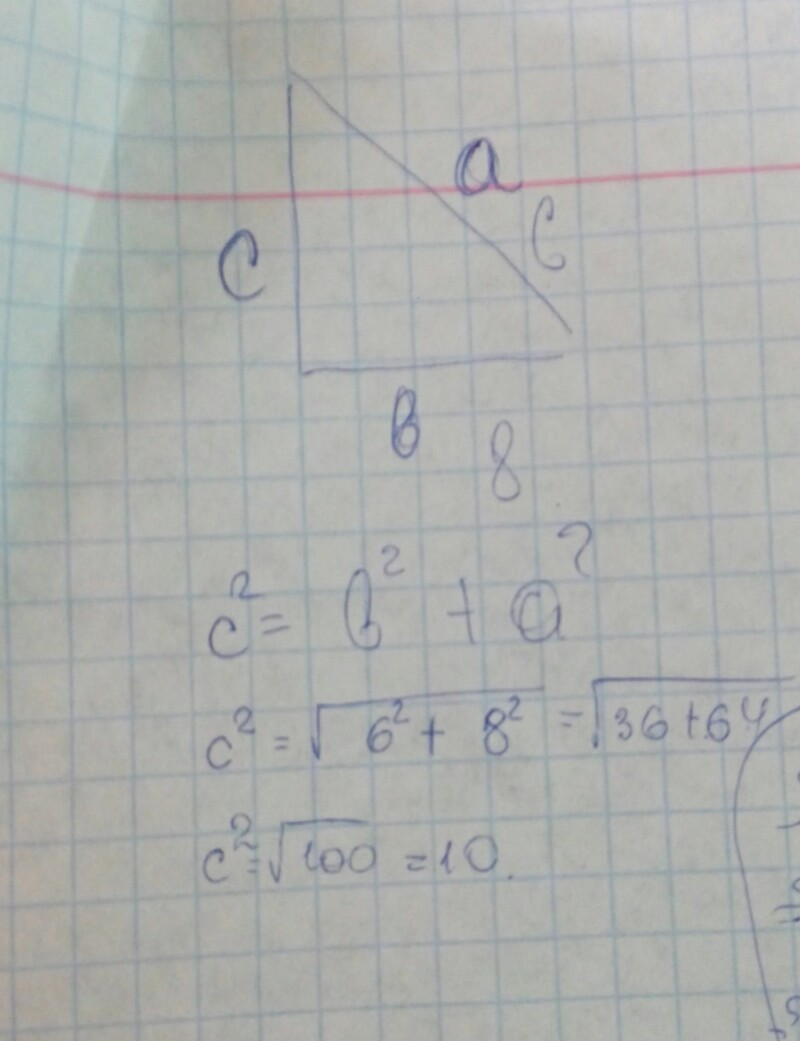 a
c 6
в 8
c² = в² + a²
c² = √6² + 8² = √36+64
c² = √100 = 10.